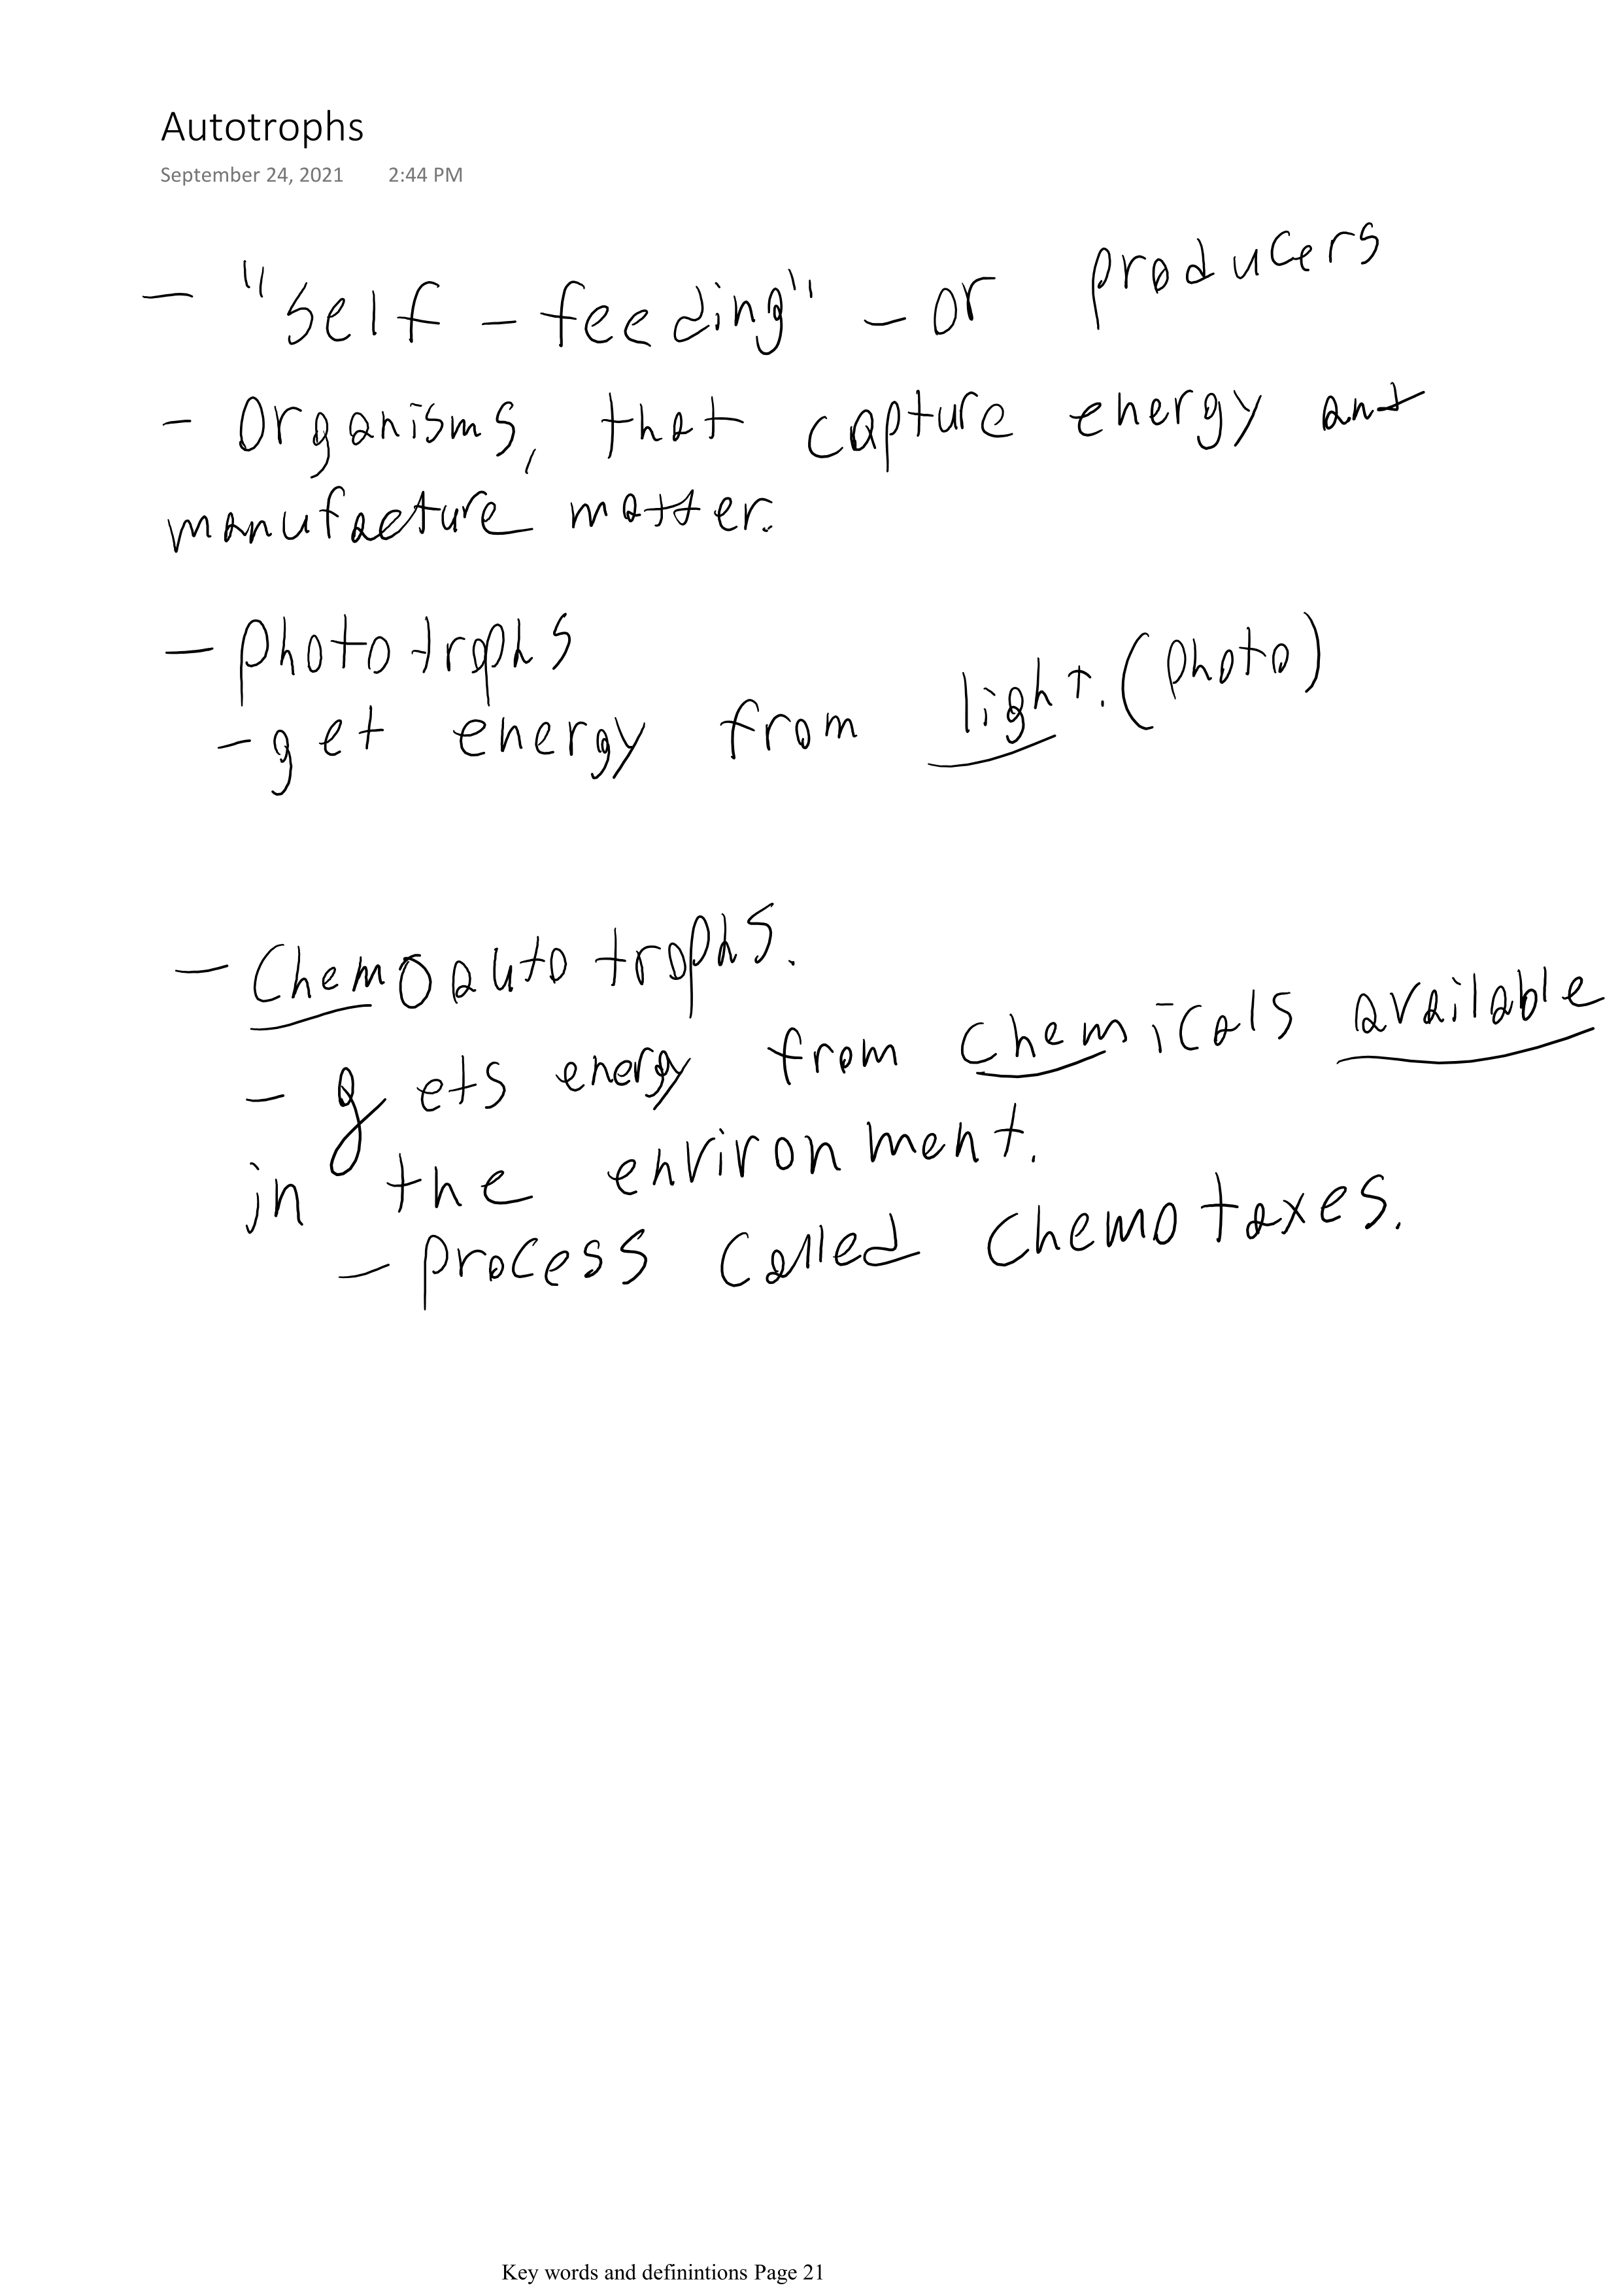 Autotrophs
September 24, 2021 2:44 PM
- "self-feeding" - or producers
- Organisms, that capture energy and
manufacture matter.
- phototrophs
- get energy from light. (photo)
- Chemoautotrophs.
- gets energy from chemicals available
in the environment.
- process called chemotaxes.
Key words and definintions Page 21